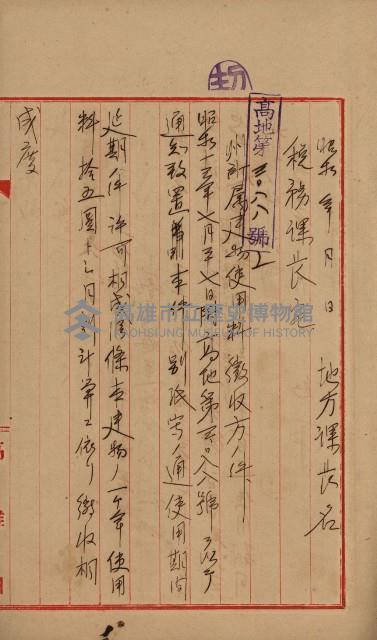 昭和 年 月 日
地方課長名
税務課長宛
高地第三〇六八號ノ
州所属建物使用料徴収方ノ件
昭和十三年七月 七日 高地第三〇六八號ヲ以テ
通知致置 首題 別紙写ノ通使用期間
延期ノ件許可相成 條 建物ノ一ケ年使用
料拾五圓 月割計算ニ依リ徴収相
成度
高雄市立歷史博物館
KAOHSIUNG MUSEUM OF HISTORY
高雄州